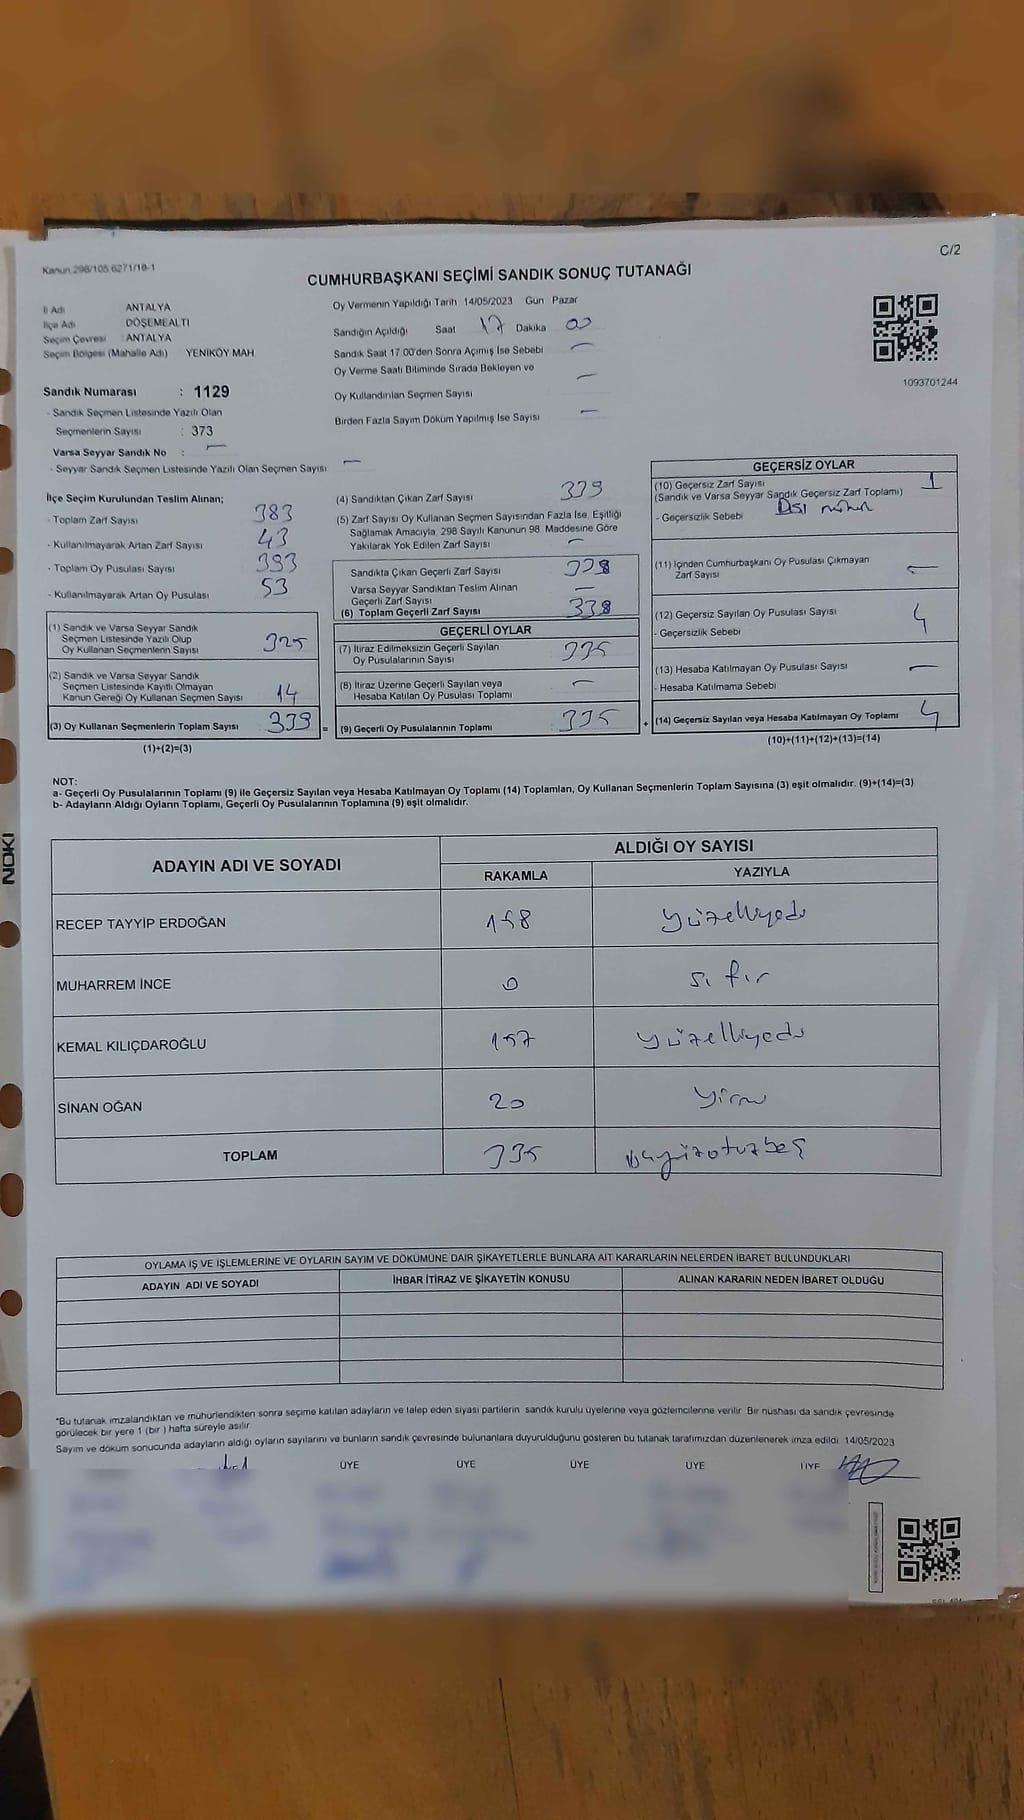 C/2
Kanun.298/105.6271/18-1
CUMHURBAŞKANI SEÇİMİ SANDIK SONUÇ TUTANAĞI
İl Adı ANTALYA
İlçe Adı DÖŞEMEALTI
Seçim Çevresi : ANTALYA
Seçim Bölgesi (Mahalle Adı) YENİKÖY MAH
Oy Vermenin Yapıldığı Tarih 14/05/2023 Gün Pazar
Sandığın Açıldığı Saat 17 Dakika 00
Sandık Saat 17.00'den Sonra Açımış İse Sebebi —
Oy Verme Saati Bitiminde Sırada Bekleyen ve
Oy Kullandırılan Seçmen Sayısı —
Birden Fazla Sayım Döküm Yapılmış İse Sayısı —
1093701244
Sandık Numarası : 1129
- Sandık Seçmen Listesinde Yazılı Olan
Seçmenlerin Sayısı : 373
Varsa Seyyar Sandık No : —
- Seyyar Sandık Seçmen Listesinde Yazılı Olan Seçmen Sayısı —
İlçe Seçim Kurulundan Teslim Alınan;
- Toplam Zarf Sayısı 383
- Kullanılmayarak Artan Zarf Sayısı 43
- Toplam Oy Pusulası Sayısı 393
- Kullanılmayarak Artan Oy Pusulası 53
(1) Sandık ve Varsa Seyyar Sandık
Seçmen Listesinde Yazılı Olup
Oy Kullanan Seçmenlerin Sayısı 325
(2) Sandık ve Varsa Seyyar Sandık
Seçmen Listesinde Kayıtlı Olmayan
Kanun Gereği Oy Kullanan Seçmen Sayısı 14
(3) Oy Kullanan Seçmenlerin Toplam Sayısı 339 =
(1)+(2)=(3)
(4) Sandıktan Çıkan Zarf Sayısı 339
(5) Zarf Sayısı Oy Kullanan Seçmen Sayısından Fazla İse, Eşitliği
Sağlamak Amacıyla, 298 Sayılı Kanunun 98. Maddesine Göre
Yakılarak Yok Edilen Zarf Sayısı —
Sandıkta Çıkan Geçerli Zarf Sayısı 338
Varsa Seyyar Sandıktan Teslim Alınan
Geçerli Zarf Sayısı —
(6) Toplam Geçerli Zarf Sayısı 338
GEÇERLİ OYLAR
(7) İtiraz Edilmeksizin Geçerli Sayılan
Oy Pusulalarının Sayısı 335
(8) İtiraz Üzerine Geçerli Sayılan veya
Hesaba Katılan Oy Pusulası Toplamı —
(9) Geçerli Oy Pusulalarının Toplamı 335 +
GEÇERSİZ OYLAR
(10) Geçersiz Zarf Sayısı 1
(Sandık ve Varsa Seyyar Sandık Geçersiz Zarf Toplamı)
- Geçersizlik Sebebi
(11) İçinden Cumhurbaşkanı Oy Pusulası Çıkmayan
Zarf Sayısı —
(12) Geçersiz Sayılan Oy Pusulası Sayısı 4
- Geçersizlik Sebebi
(13) Hesaba Katılmayan Oy Pusulası Sayısı —
- Hesaba Katılmama Sebebi
(14) Geçersiz Sayılan veya Hesaba Katılmayan Oy Toplamı 4
(10)+(11)+(12)+(13)=(14)
NOT:
a- Geçerli Oy Pusulalarının Toplamı (9) ile Geçersiz Sayılan veya Hesaba Katılmayan Oy Toplamı (14) Toplamları, Oy Kullanan Seçmenlerin Toplam Sayısına (3) eşit olmalıdır. (9)+(14)=(3)
b- Adayların Aldığı Oyların Toplamı, Geçerli Oy Pusulalarının Toplamına (9) eşit olmalıdır.
NOKI
ADAYIN ADI VE SOYADI ALDIĞI OY SAYISI
RAKAMLA YAZIYLA
RECEP TAYYİP ERDOĞAN 158 yüzelliyedi
MUHARREM İNCE 0 sıfır
KEMAL KILIÇDAROĞLU 157 yüzelliyedi
SİNAN OĞAN 20 yirmi
TOPLAM 335 üçyüzotuzbeş
OYLAMA İŞ VE İŞLEMLERİNE VE OYLARIN SAYIM VE DÖKÜMÜNE DAİR ŞİKAYETLERLE BUNLARA AİT KARARLARIN NELERDEN İBARET BULUNDUKLARI
ADAYIN ADI VE SOYADI İHBAR İTİRAZ VE ŞİKAYETİN KONUSU ALINAN KARARIN NEDEN İBARET OLDUĞU
*Bu tutanak imzalandıktan ve mühürlendikten sonra seçime katılan adayların ve talep eden siyasi partilerin sandık kurulu üyelerine veya gözlemcilerine verilir. Bir nüshası da sandık çevresinde
görülecek bir yere 1 (bir ) hafta süreyle asılır.
Sayım ve döküm sonucunda adayların aldığı oyların sayılarını ve bunların sandık çevresinde bulunanlara duyurulduğunu gösteren bu tutanak tarafımızdan düzenlenerek imza edildi. 14/05/2023
ÜYE ÜYE ÜYE ÜYE ÜYE